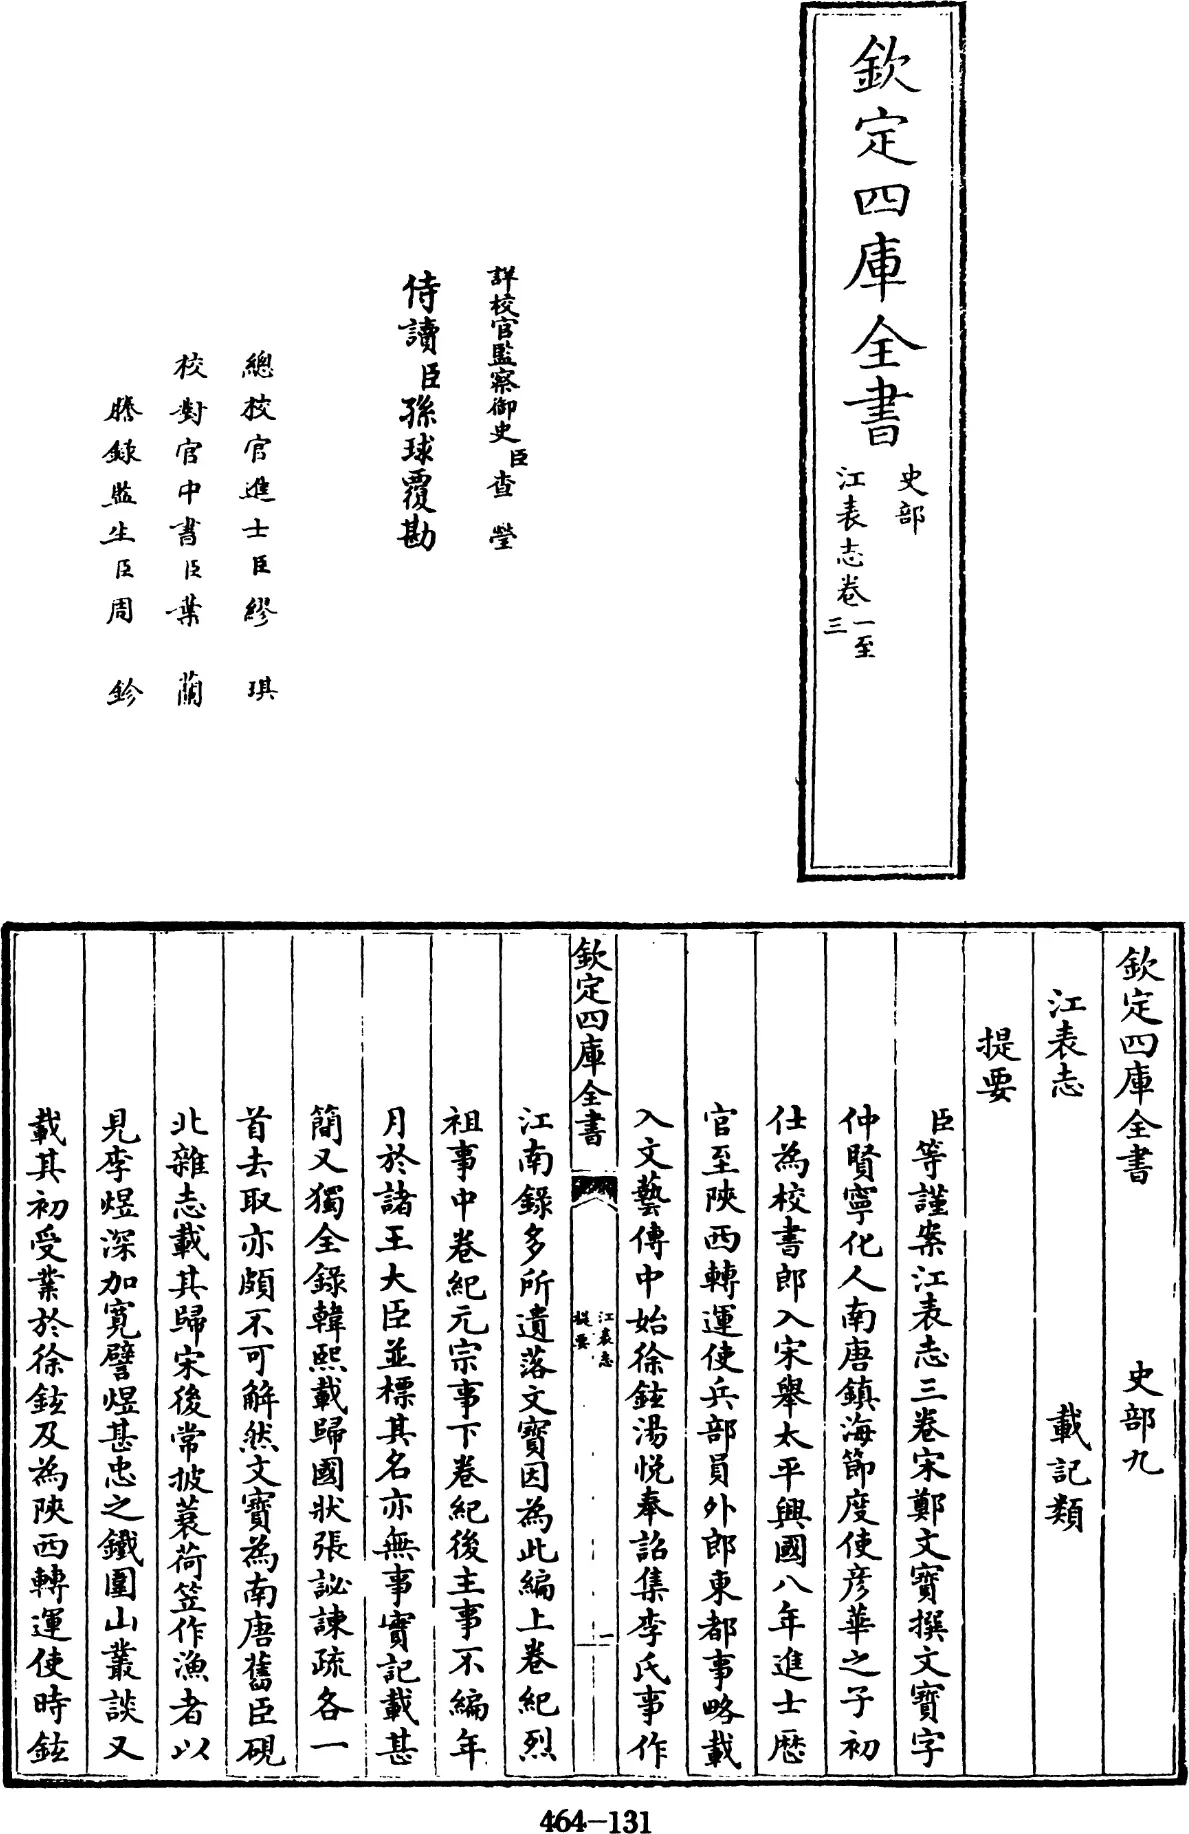 欽定四庫全書
史部
江表志卷一至
三
詳校官監察御史臣查瑩
侍讀臣孫球覆勘
總校官進士臣繆琪
校對官中書臣葉蘭
謄錄監生臣周鉁
欽定四庫全書 史部九
江表志 載記類
提要
臣等謹案江表志三卷宋鄭文寶撰文寶字
仲賢寧化人南唐鎮海節度使彦華之子初
仕為校書郎入宋舉太平興國八年進士歷
官至陝西轉運使兵部員外郎東都事略載
入文藝傳中始徐鉉湯悅奉詔集李氏事作
欽定四庫全書
江表志
提要
一
江南錄多所遺落文寶因為此編上卷紀烈
祖事中卷紀元宗事下卷紀後主事不編年
月於諸王大臣並標其名亦無事實記載甚
簡又獨全錄韓熙載歸國狀張訫諫疏各一
首去取亦頗不可解然文寶為南唐舊臣硯
北雜志載其歸宋後常披蓑荷笠作漁者以
見李煜深加寛譬煜甚忠之鐵圍山叢談又
載其初受業於徐鉉及為陝西轉運使時鉉
464-131